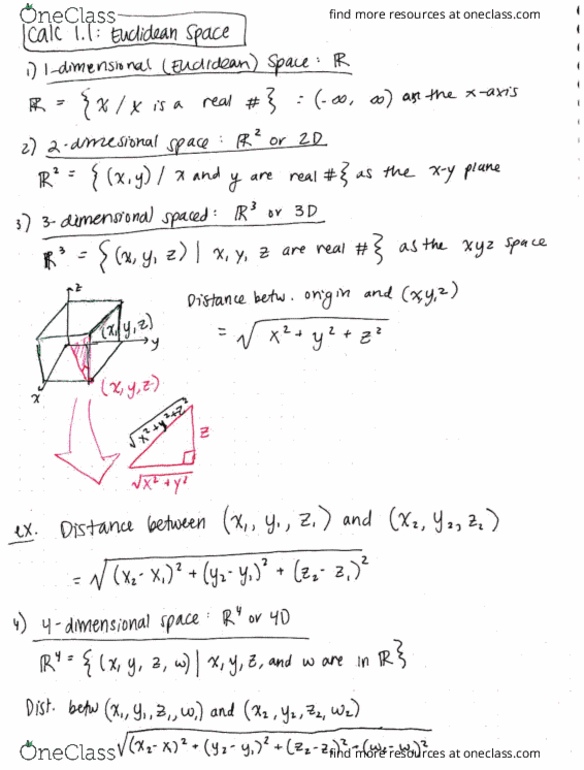 OneClass
find more resources at oneclass.com
Calc 1.1: Euclidean Space
1) 1-dimensional (Euclidean) Space: ℝ
ℝ = { x / x is a real # } = (-∞, ∞) as the x-axis
2) 2-dimzesional space: ℝ² or 2D
ℝ² = { (x,y) / x and y are real # } as the x-y plane
3) 3-dimensional spaced: ℝ³ or 3D
ℝ³ = { (x, y, z) | x, y, z are real # } as the xyz space
Distance betw. origin and (x,y,z)
= √(x² + y² + z²)
z
(x, y, z)
y
x
(x, y, z)
√(x² + y² + z²)
z
√(x² + y²)
ex. Distance between (x₁, y₁, z₁) and (x₂, y₂, z₂)
= √((x₂ - x₁)² + (y₂ - y₁)² + (z₂ - z₁)²)
4) 4-dimensional space: ℝ⁴ or 4D
ℝ⁴ = { (x, y, z, w) | x, y, z, and w are in ℝ }
Dist. betw (x₁, y₁, z₁, w₁) and (x₂, y₂, z₂, w₂)
√((x₂ - x)² + (y₂ - y₁)² + (z₂ - z₁)² + (w₂ - w)²)
OneClass
find more resources at oneclass.com